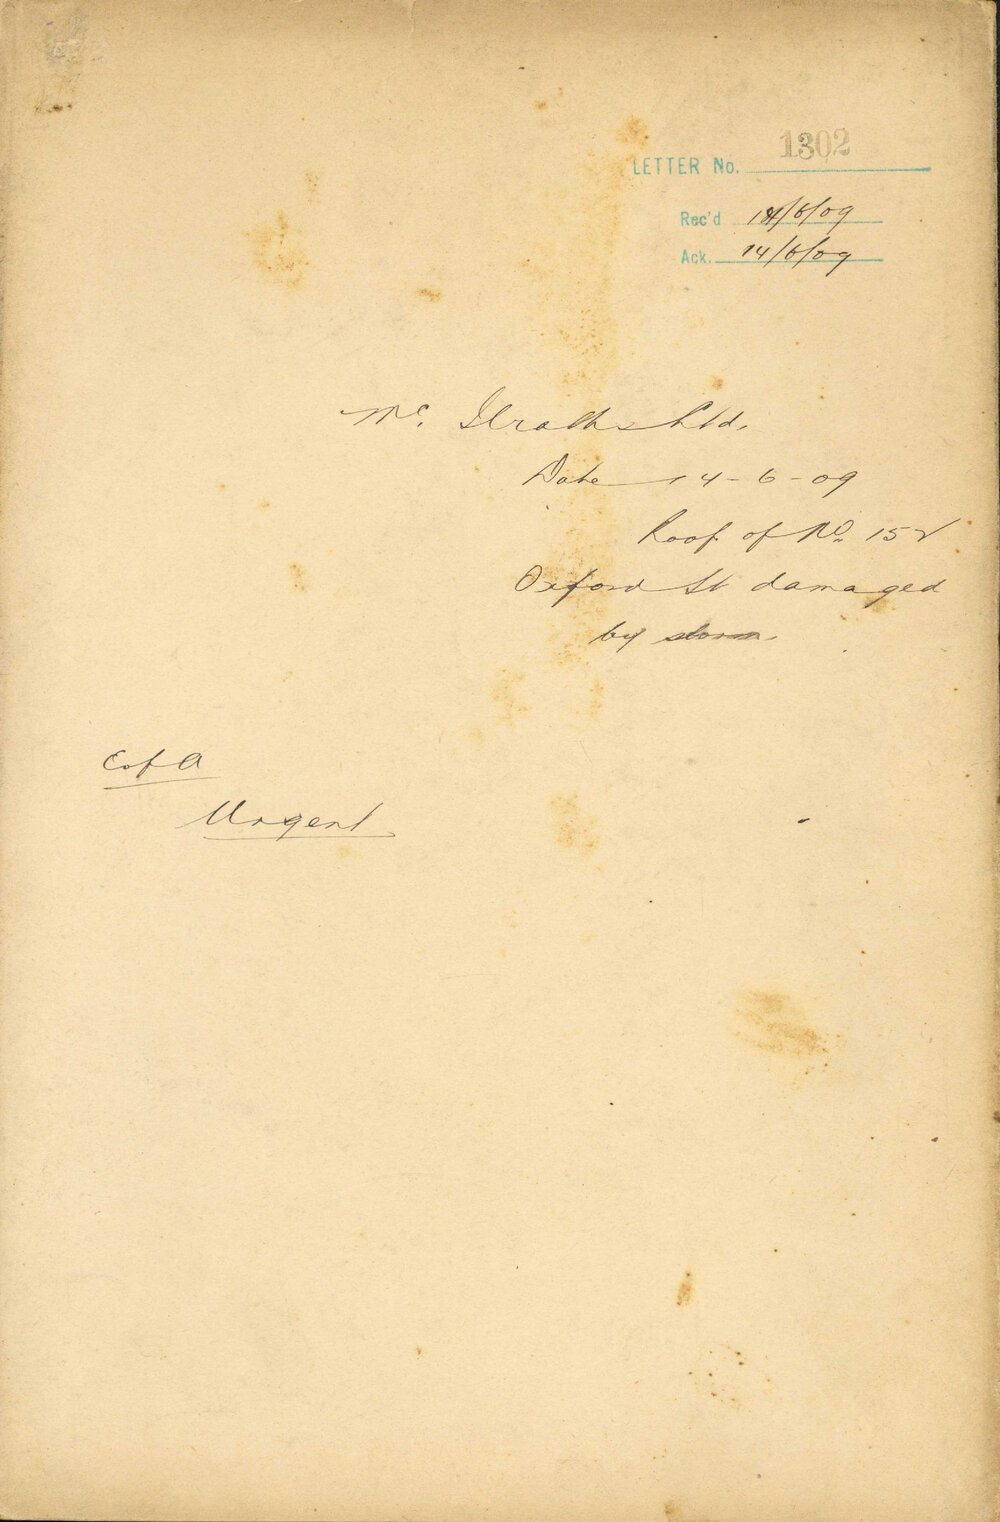 LETTER No. 1302
Rec'd 14/6/09
Ack. 14/6/09
Mc. Ilraths Ltd.
Date 14-6-09
Roof of No. 152
Oxford St damaged
by storm.
C of A
Urgent